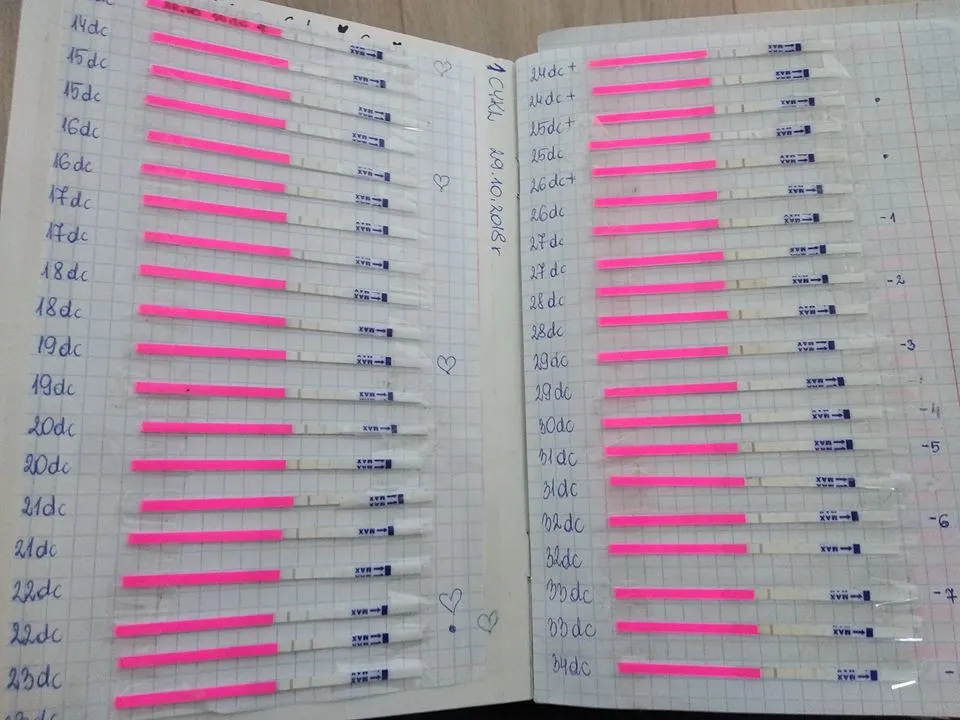 14dc
15dc
15dc
16dc
16dc
17dc
17dc
18dc
18dc
19dc
19dc
20dc
20dc
21dc
21dc
22dc
22dc
23dc
MAX
1 CYKL 29.10.2018r
24dc +
24dc +
25dc +
25dc
26dc +
26dc
27dc
27dc
28dc
28dc
29dc
29dc
30dc
31dc
31dc
32dc
32dc
33dc
33dc
34dc
MAX
-1
-2
-3
-4
-5
-6
-7